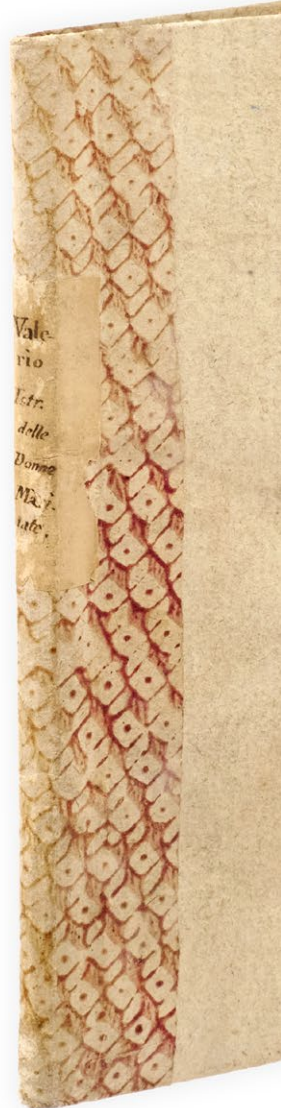 Vale-
rio
Istr.
delle
Donne
Mari-
tate.